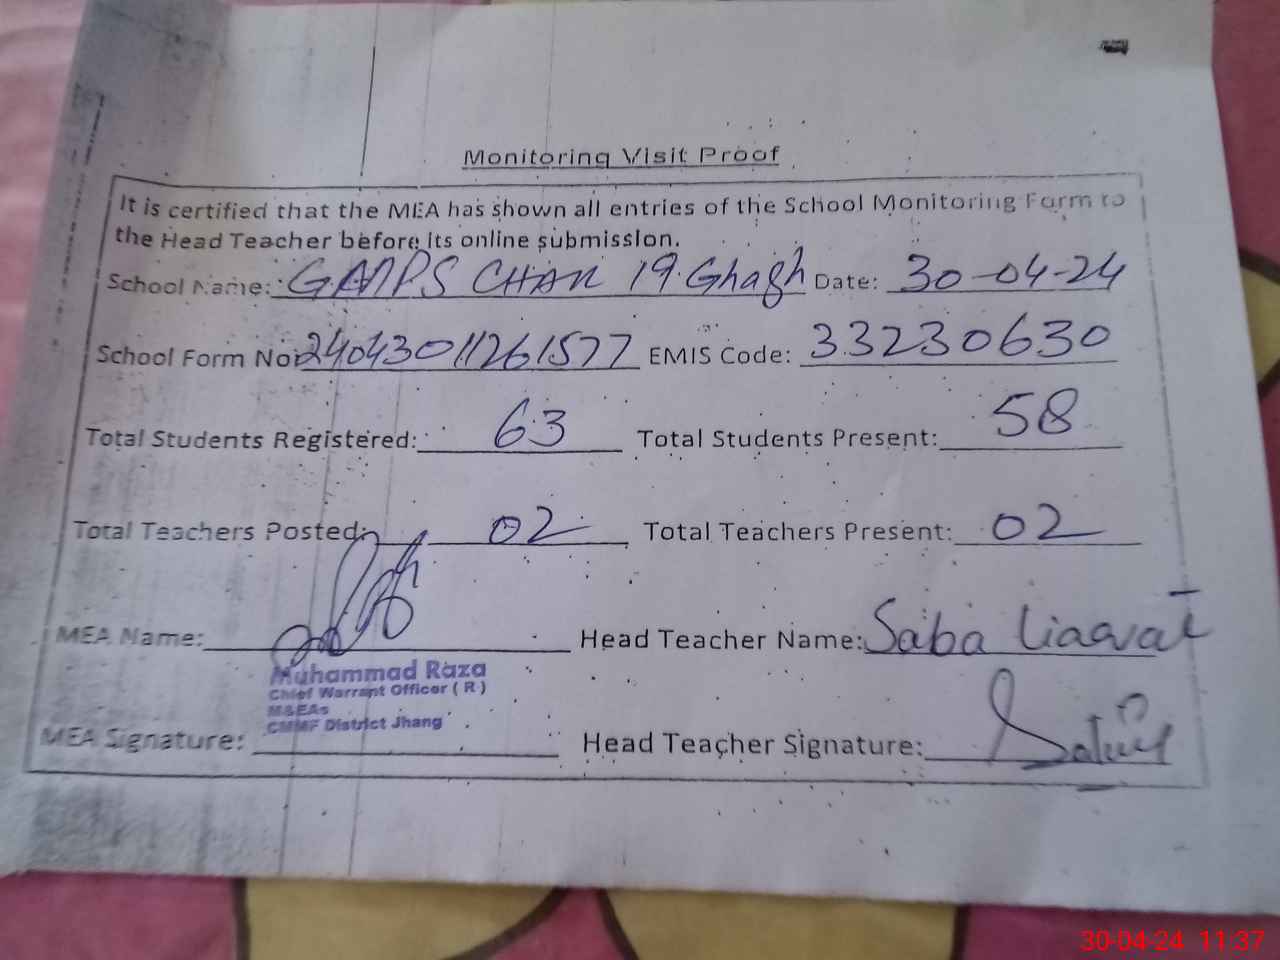 Monitoring Visit Proof
It is certified that the MEA has shown all entries of the School Monitoring Form to
the Head Teacher before its online submission.
School Name: GMMPS CHAK 19 Ghagh Date: 30-04-24
School Form No: 24043011261577 EMIS Code: 33230630
Total Students Registered: 63 Total Students Present: 58
Total Teachers Posted: 02 Total Teachers Present: 02
MEA Name: Head Teacher Name: Saba Liaqat
Muhammad Raza
Chief Warrant Officer ( R )
M&EAs
CMMF District Jhang
MEA Signature: Head Teacher Signature:
30-04-24 11:37